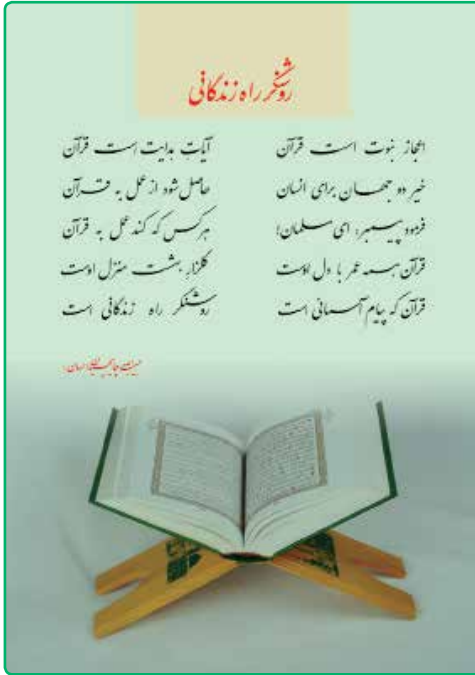 روشنگر راه زندگانی
اعجاز نبوت است قرآن آیات هدایت است قرآن
خیر دو جهان برای انسان حاصل شود از عمل به قرآن
فرمود پیمبر، ای مسلمان! هرکس که کند عمل به قرآن
قرآن همه عمر با دل اوست گلزار بهشت منزل اوست
قرآن که پیام آسمانی است روشنگر راه زندگانی است